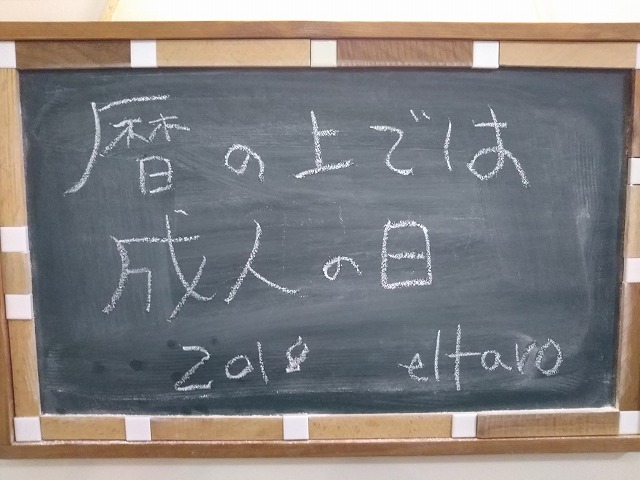 暦の上では
成人の日
2018 eltaro